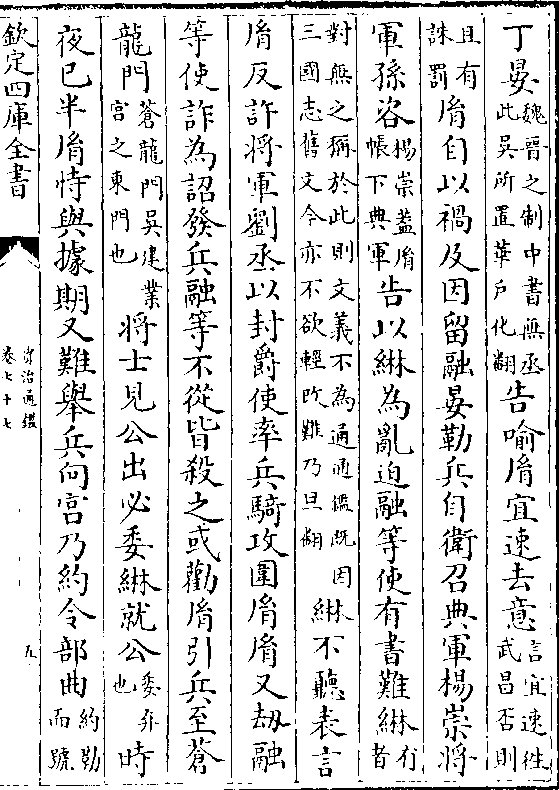 丁晏魏晉之制中書無丞此吳所置華戶化翻告喻胤宜速去意言宜速徃武昌否則
且有誅罰胤自以禍及因留融晏勒兵自衛召典軍楊崇將
軍孫咨楊崇蓋胤帳下典軍告以綝為亂迫融等使有書難綝有者
對無之稱於此則文義不為通通鑑既因三國志舊文今亦不欲輕改難乃旦翻綝不聽表言
胤反許將軍劉丞以封爵使率兵騎攻圍胤胤又刼融
等使詐為詔發兵融等不從皆殺之或勸胤引兵至蒼
龍門蒼龍門吳建業宮之東門也將士見公出必委綝就公委弃也時
夜已半胤恃與據期又難舉兵向宮乃約令部曲約勒而號
欽定四庫全書
資治通鑑
卷七十七
九